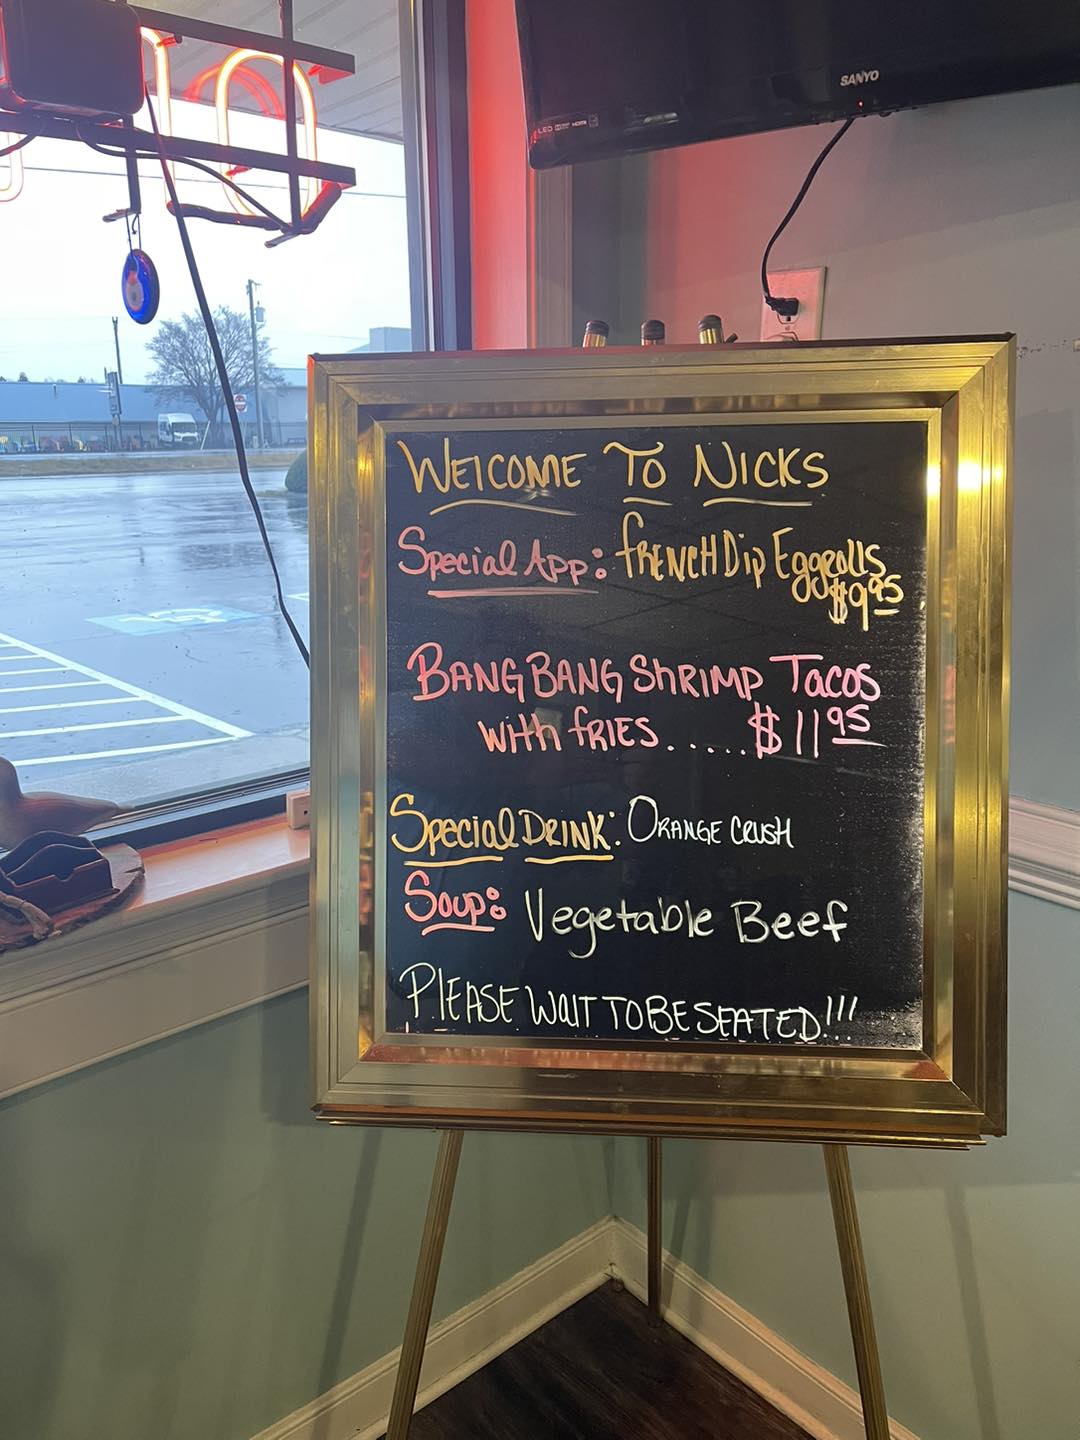 SANYO
LED HDMI
WELCOME TO NICKS
Special App: FRENCH Dip Eggrolls
$9.95
BANG BANG ShRIMP Tacos
with fRIES.....$11.95
Special DRINK: ORANGE CRUSH
Soup: Vegetable Beef
PLEASE WAIT TO BE SEATED!!!